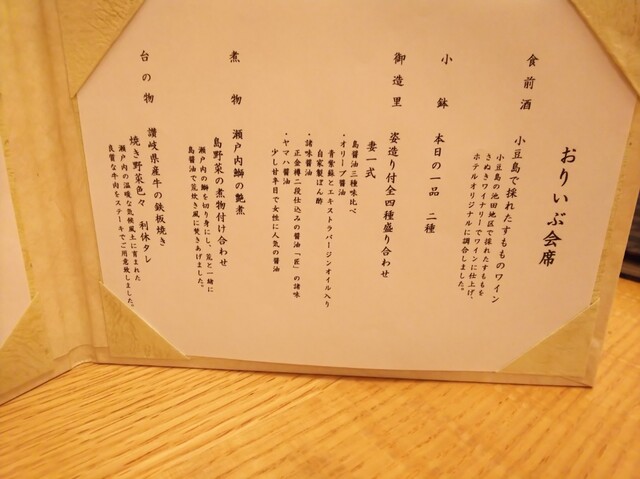 おりいぶ会席
食前酒
小豆島で採れたすもものワイン
小豆島の池田地区で採れたすももを
さぬきワイナリーでワインに仕上げ、
ホテルオリジナルに調合しました。
小鉢 本日の一品 二種
御造里 姿造り付全四種盛り合わせ
妻一式
島醤油三種味比べ
・オリーブ醤油
青紫蘇とエキストラバージンオイル入り
自家製ぽん酢
・諸味醤油
正金樽二段仕込みの醤油「匠」の諸味
・ヤマハ醤油
少し甘辛目で女性に人気の醤油
煮物 瀬戸内鰤の艶煮
島野菜の煮物付け合わせ
瀬戸内の鰤を切り身にし、荒と一緒に
島醤油で荒炊き風に焚きあげました。
台の物 讃岐県産牛の鉄板焼き
焼き野菜色々 利休タレ
瀬戸内の温暖な気候風土に育まれた
良質な牛肉をステーキでご用意致しました。